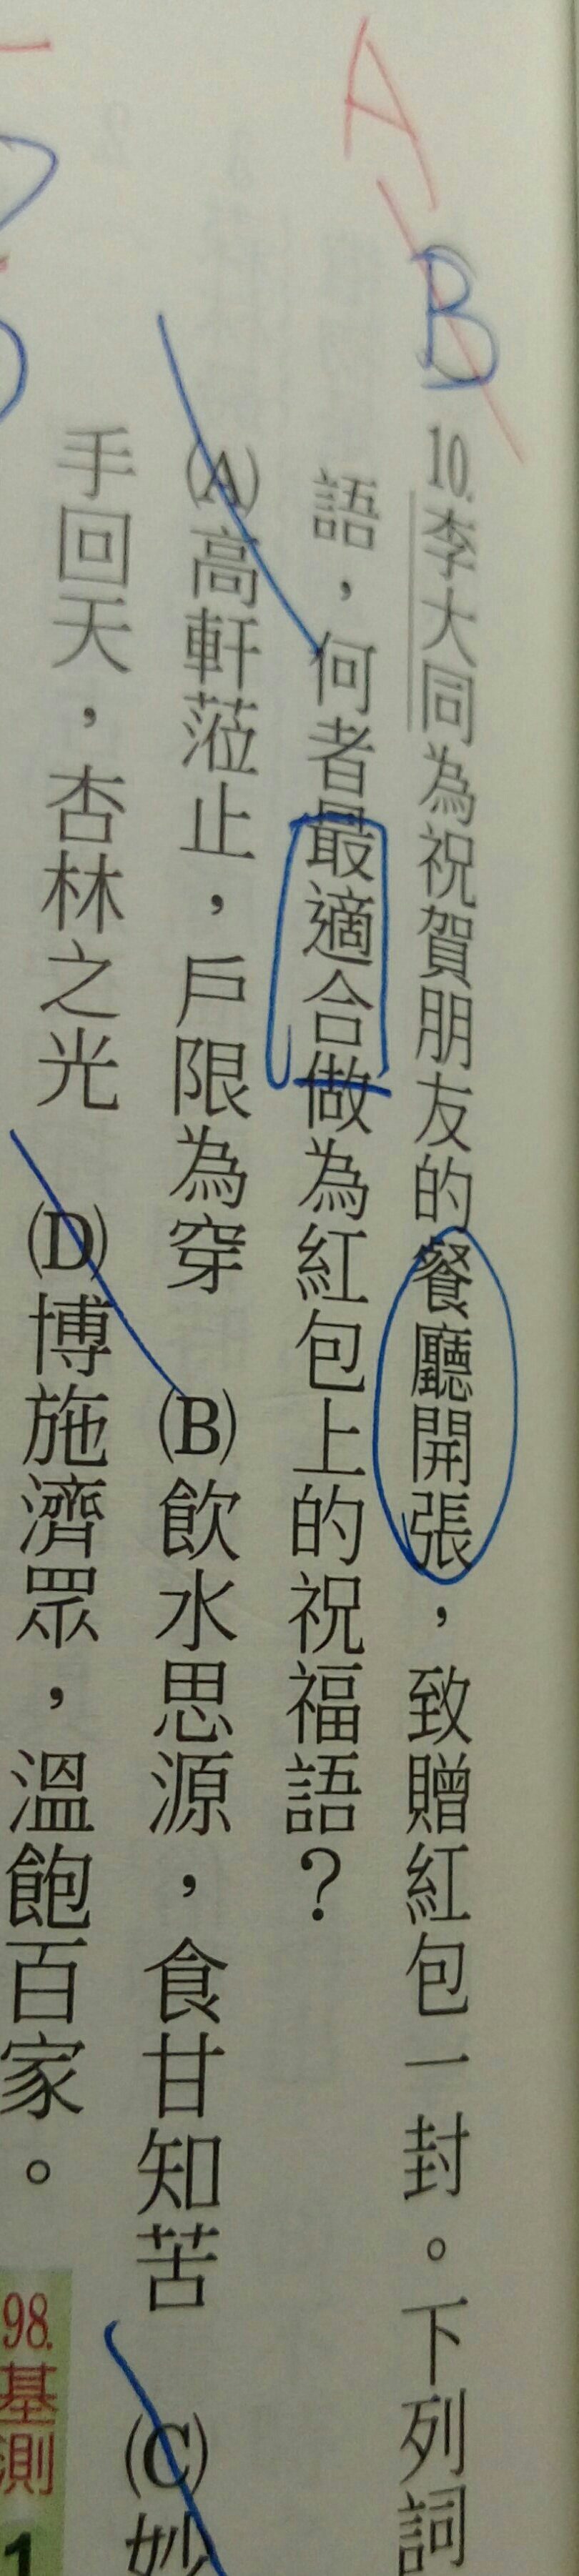 A
B
10.李大同為祝賀朋友的餐廳開張，致贈紅包一封。下列詞
語，何者最適合做為紅包上的祝福語？
(A)高軒蒞止，戶限為穿　(B)飲水思源，食甘知苦　(C)妙
手回天，杏林之光　(D)博施濟眾，溫飽百家。
98.基測
1